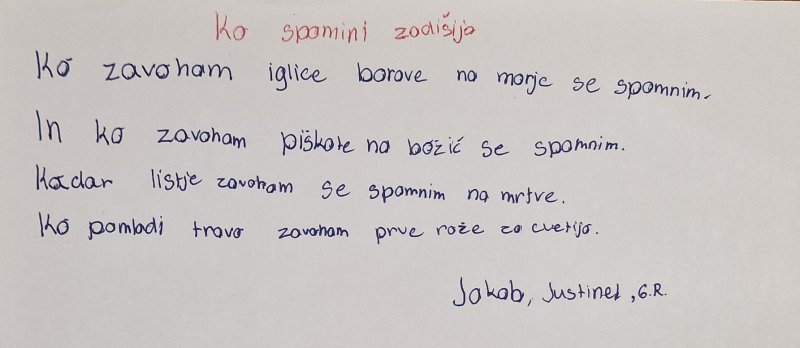 Ko spomini zadišijo
Ko zavoham iglice borove na morje se spomnim.
In ko zavoham piškote na božić se spomnim.
Kadar listje zavoham se spomnim na mrtve.
Ko pomladi travo zavoham prve rože zacvetijo.
Jakob, Justinet, 6.R.